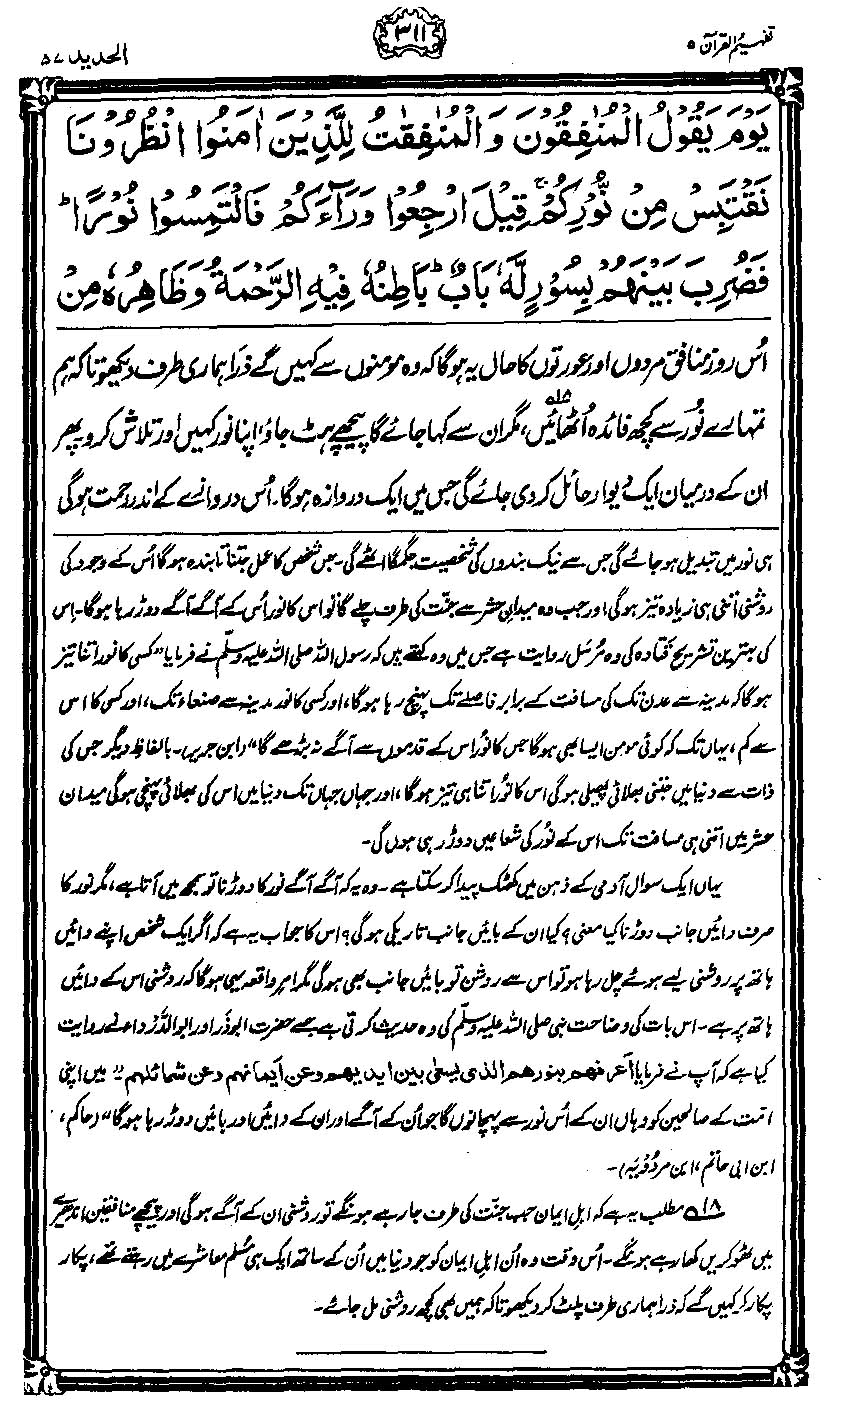 تفہیم القرآن ۵
۳۱۱
الحدید ۵۷
يَوْمَ يَقُوْلُ الْمُنٰفِقُوْنَ وَالْمُنٰفِقٰتُ لِلَّذِيْنَ اٰمَنُوا انْظُرُوْنَا
نَقْتَبِسْ مِنْ نُّوْرِكُمْ ۚ قِيْلَ ارْجِعُوْا وَرَآءَكُمْ فَالْتَمِسُوْا نُوْرًا ؕ
فَضُرِبَ بَيْنَهُمْ بِسُوْرٍ لَّهٗ بَابٌ ؕ بَاطِنُهٗ فِيْهِ الرَّحْمَةُ وَظَاهِرُهٗ مِنْ
اُس روز منافق مردوں اور عورتوں کا حال یہ ہوگا کہ وہ مومنوں سے کہیں گے ذرا ہماری طرف دیکھو تاکہ ہم
تمہارے نُور سے کچھ فائدہ اُٹھائیں،۱۸ مگر ان سے کہا جائے گا پیچھے ہٹ جاؤ، اپنا نور کہیں اور تلاش کرو۔ پھر
ان کے درمیان ایک دیوار حائل کر دی جائے گی جس میں ایک دروازہ ہوگا۔ اُس دروازے کے اندر رحمت ہوگی
ہی نور میں تبدیل ہو جائے گی جس سے نیک بندوں کی شخصیت جگمگا اٹھے گی۔ جس شخص کا عمل جتنا تابندہ ہوگا اُس کے وجود کی
روشنی اتنی ہی زیادہ تیز ہوگی اور جب وہ میدانِ حشر سے جنّت کی طرف چلے گا تو اس کا نور اُس کے آگے آگے دوڑ رہا ہوگا۔ اِس
کی بہترین تشریح قتادہ کی وہ مُرسَل روایت ہے جس میں وہ کہتے ہیں کہ رسول اللہ صلی اللہ علیہ وسلّم نے فرمایا ”کسی کا نور اتنا تیز
ہوگا کہ مدینہ سے عدن تک کی مسافت کے برابر فاصلے تک پہنچ رہا ہوگا، اور کسی کا نور مدینہ سے صنعاء تک، اور کسی کا اس
سے کم، یہاں تک کہ کوئی مومن ایسا بھی ہوگا جس کا نُور اس کے قدموں سے آگے نہ بڑھے گا“ (ابن جریر)۔ بالفاظِ دیگر جس کی
ذات سے دنیا میں جتنی بھلائی پھیلی ہوگی اس کا نُور اتنا ہی تیز ہوگا، اور جہاں جہاں تک دنیا میں اس کی بھلائی پہنچی ہوگی میدان
حشر میں اتنی ہی مسافت تک اس کے نُور کی شعاعیں دوڑ رہی ہوں گی۔
یہاں ایک سوال آدمی کے ذہن میں کھٹک پیدا کر سکتا ہے۔ وہ یہ کہ آگے آگے نور کا دوڑنا تو سمجھ میں آتا ہے، مگر نور کا
صرف دائیں جانب دوڑنا کیا معنی؟ کیا ان کے بائیں جانب تاریکی ہوگی؟ اس کا جواب یہ ہے کہ اگر ایک شخص اپنے دائیں
ہاتھ پر روشنی لیے ہوئے چل رہا ہو تو اس سے روشن تو بائیں جانب بھی ہوگی مگر امرِ واقعہ یہی ہوگا کہ روشنی اس کے دائیں
ہاتھ پر ہے۔ اس بات کی وضاحت نبی صلی اللہ علیہ وسلّم کی وہ حدیث کرتی ہے جسے حضرت ابوذَرّ اور ابوالدَّرداء نے روایت
کیا ہے کہ آپ نے فرمایا اَعرفھم بنورھم الذی یسعٰی بین ایدیھم وعن أیمانہم وعن شمائلہم ”میں اپنی
امت کے صالحین کو وہاں ان کے اُس نور سے پہچانوں گا جو اُن کے آگے اور ان کے دائیں اور بائیں دوڑ رہا ہوگا“ (حاکم،
ابن ابی حاتم، ابن مردُوْیَہ)۔
۱۸ مطلب یہ ہے کہ اہلِ ایمان جب جنّت کی طرف جا رہے ہونگے تو روشنی ان کے آگے ہوگی اور پیچھے منافقین اندھیرے
میں ٹھوکریں کھا رہے ہونگے۔ اُس وقت وہ اُن اہلِ ایمان کو جو دنیا میں اُن کے ساتھ ایک ہی مُسلم معاشرے میں رہتے تھے، پکار
پکار کر کہیں گے کہ ذرا ہماری طرف پلٹ کر دیکھو تاکہ ہمیں بھی کچھ روشنی مل جائے۔